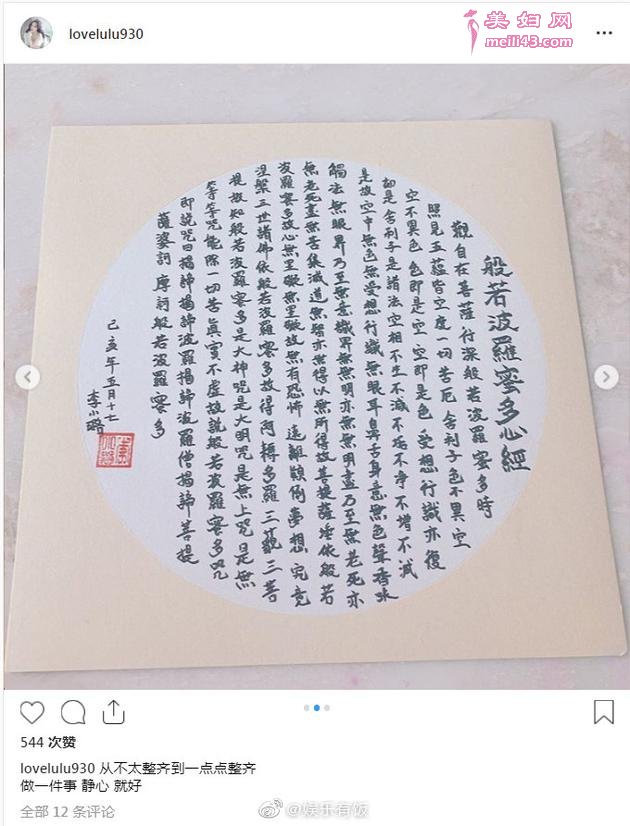 美妇网
meili43.com
lovelulu930
般若波羅蜜多心經
觀自在菩薩行深般若波羅蜜多時
照見五蘊皆空度一切苦厄舍利子色不異空
空不異色色即是空空即是色受想行識亦復
如是舍利子是諸法空相不生不滅不垢不净不增不減
是故空中無色無受想行識無眼耳鼻舌身意無色聲香味
觸法無眼界乃至無意識界無無明亦無無明盡乃至無老死亦
無老死盡無苦集滅道無智亦無得以無所得故菩提薩埵依般若
波羅蜜多故心無罣礙無罣礙故無有恐怖遠離顛倒夢想究竟
涅槃三世諸佛依般若波羅蜜多故得阿耨多羅三藐三菩
提故知般若波羅蜜多是大神咒是大明咒是無上咒是無
等等咒能除一切苦真實不虛故說般若波羅蜜多咒
即說咒曰揭諦揭諦波羅揭諦波羅僧揭諦菩提
薩婆訶 摩訶般若波羅蜜多
己亥年五月十七
李小璐
544 次赞
lovelulu930 从不太整齐到一点点整齐
做一件事 静心 就好
全部 12 条评论
@娱乐有饭